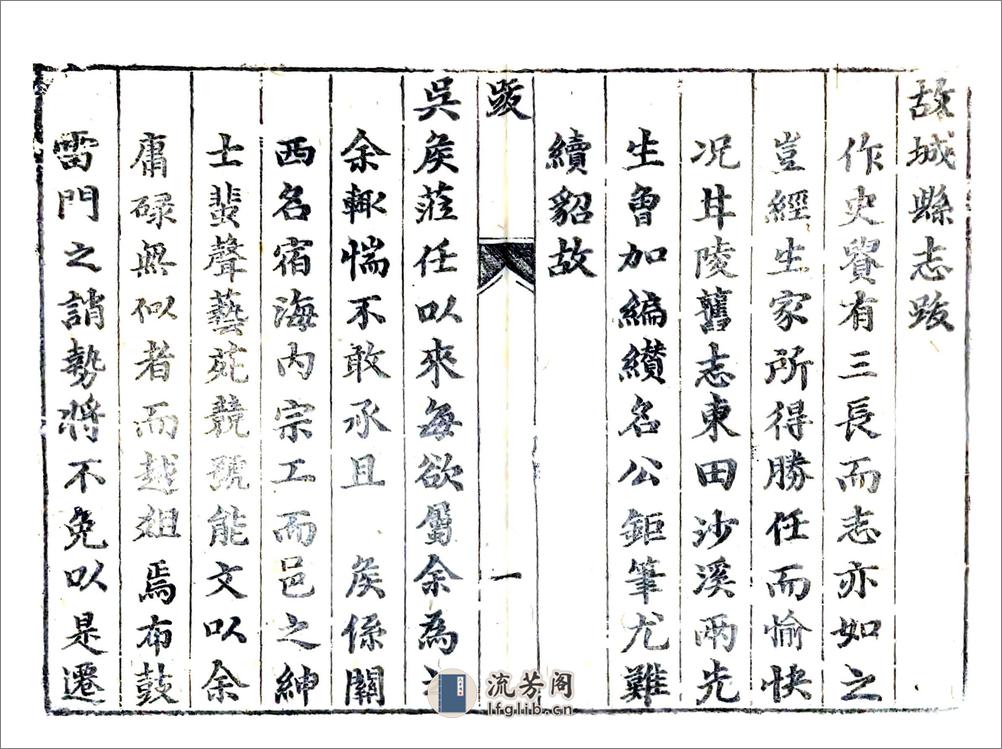 故城縣志跋
作史貲有三長而志亦如之
豈經生家所得勝任而愉快
況甘陵舊志東田沙溪兩先
生曾加編纘名公鉅筆尤難
續貂故
跋
一
吳矦蒞任以來每欲屬余為
余輙惴不敢承且 矦係關
西名宿海內宗工而邑之紳
士蜚聲藝苑競號能文以余
庸碌無似者而越俎焉布鼓
雷門之誚勢將不免以是遷
流芳阁
lfglib.cn